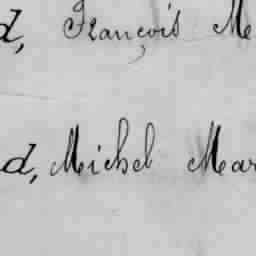 d, François Me
d, Michel Mar